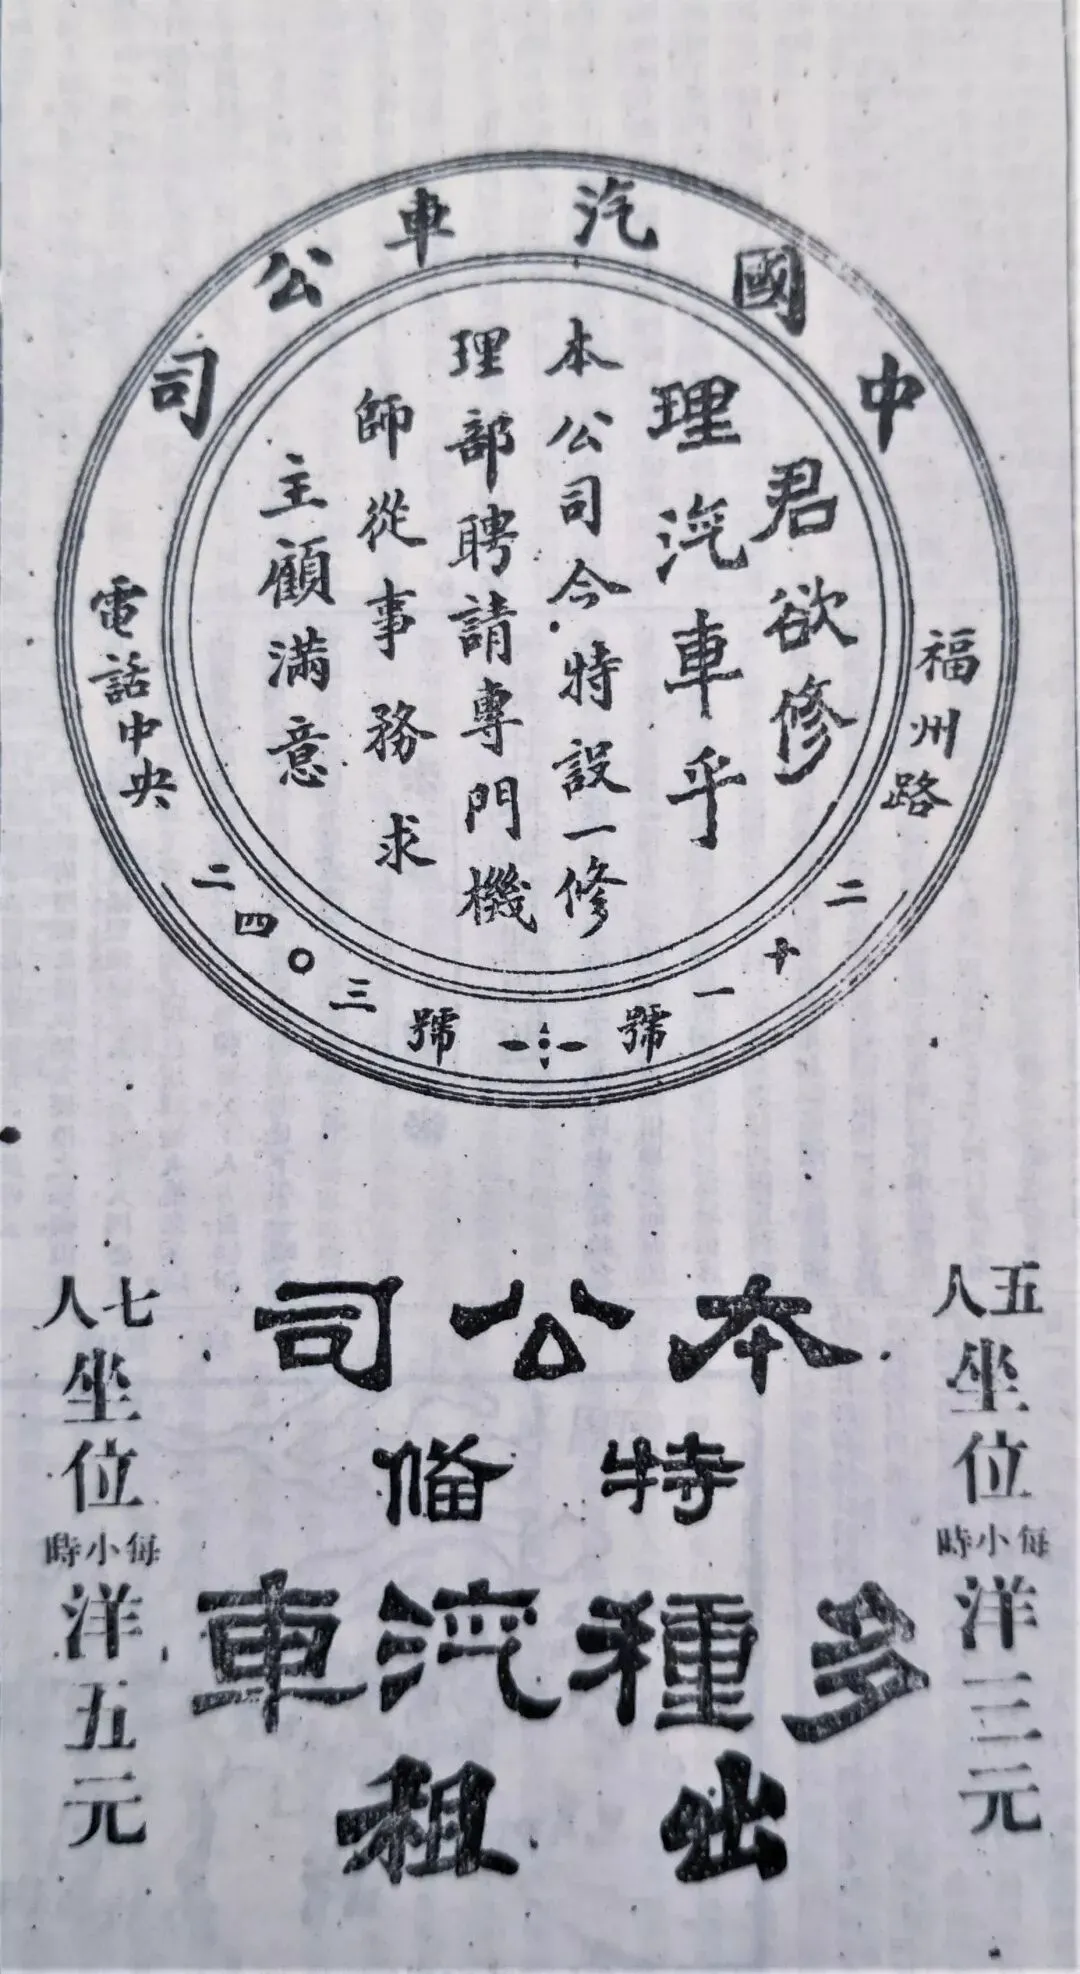 中國汽車公司
福州路二十一號
電話中央二四〇三號
君欲修
理汽車乎
本公司今特設一修
理部聘請專門機
師從事務求
主顧滿意
五人坐位每小時洋三元
本公司
特俻
多種汽車
出租
七人坐位每小時洋五元